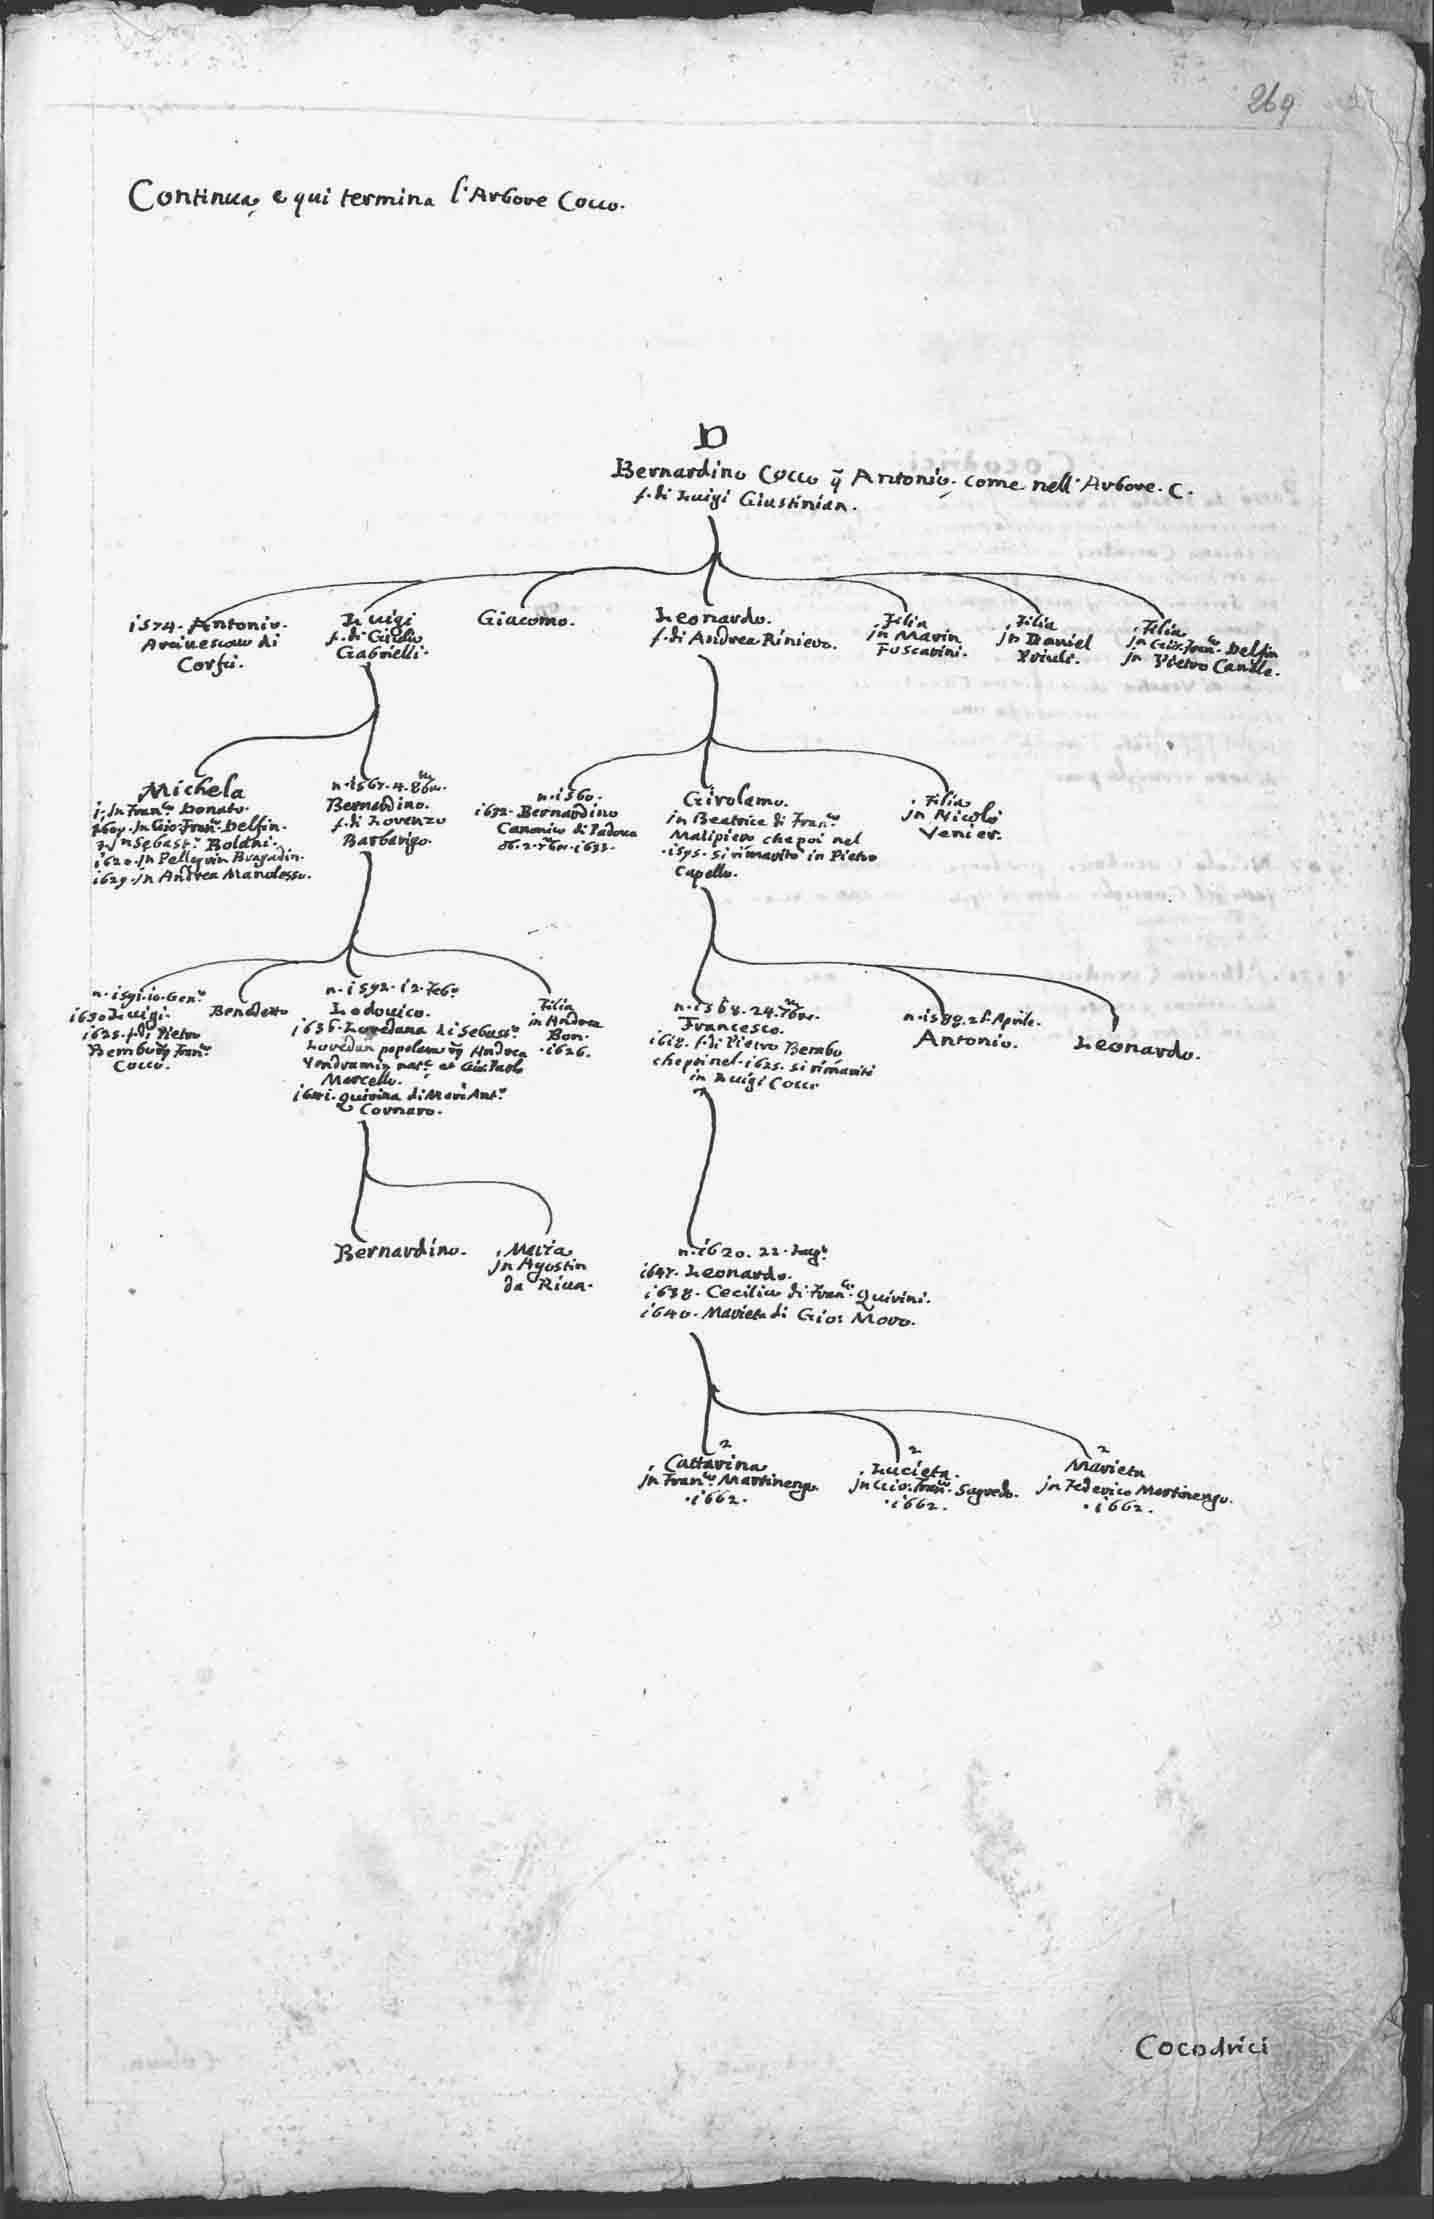 269
Continua, e qui termina l'Arbore Cocco.
D
Bernardino Cocco q̃ Antonio. come nell' Arbore. C.
f. di Luigi Giustinian.
1574. Antonio.
Arciuescouo di
Corfù.
Luigi
f. di Giulio
Gabrielli.
Giacomo.
Leonardo.
f. di Andrea Riniero.
Filia
jn Marin
Foscarini.
Filia
jn Daniel
Priuli.
Filia
jn Gio: Fran.co Delfin
jn Pietro Canale.
Michela
1. Jn Fran.co Donato.
1604. Jn Gio: Fran.co Delfin.
3. Jn Sebast.o Boldni.
1620. Jn Pellegrin Bragadin.
1629. Jn Andrea Manolesso.
n. 1567. 4. 8bre.
Bernardino.
f. di Lorenzo
Barbarigo.
n. 1560.
1632. Bernardino
Canonico di Padoua
1633.
Girolamo.
in Beatrice di Fran.co
Malipiero che poi nel
1595. si rimaritò in Pietro
Capello.
Filia
jn Nicolò
Venier.
n. 1591. 10. Gen.o
1630 Luigi.
1625. f. di Pietro
Bembo q̃ Fran.co
Cocco.
Benedetto
n. 1592. 12. Feb.o
Lodouico.
1636. Loredana di Sebast.o
Loredan popolare q̃ Andrea
Vendramin nat.e et Gio: Paolo
Marcello.
1641. Quirina di Marc' Ant.o
Cornaro.
Filia
in Andrea
Bon.
1626.
n. 1568. 24. 7bre.
Francesco.
1618. f. di Pietro Bembo
che poi nel 1625. si rimaritò
in Luigi Cocco
n. 1588. 28. Aprile.
Antonio.
Leonardo.
Bernardino.
Maria
jn Agostin
da Riua.
n. 1620. 22. Lug.o
1647. Leonardo.
1638. Cecilia di Fran.co Quirini.
1640. Marieta di Gio: Moro.
2
Cattarina
jn Fran.co Martinengo.
1662.
2
Lucieta.
jn Gio: Fran.co Sagredo.
1662.
2
Marieta
jn Federico Martinengo.
1662.
Cocodrici